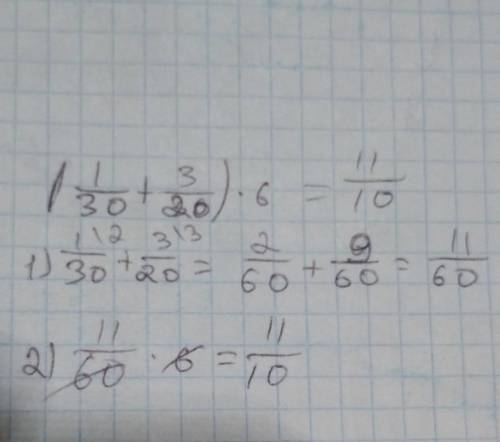 (1/30 + 3/20) · 6 = 11/10
1) 1\2/30 + 3\3/20 = 2/60 + 9/60 = 11/60
2) 11/60 · 6 = 11/10